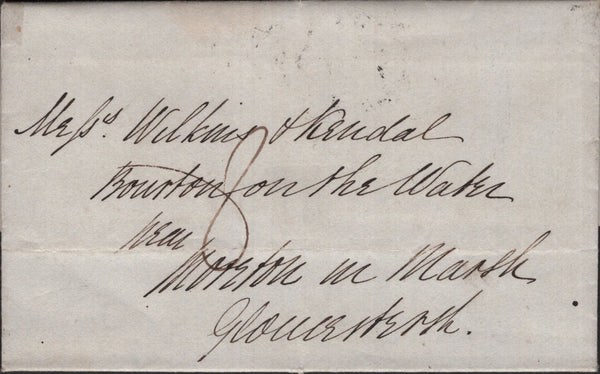 Messrs. Wilkins & Kendal
Bourton on the Water
near
Moreton in Marsh
Gloucestersh.
8